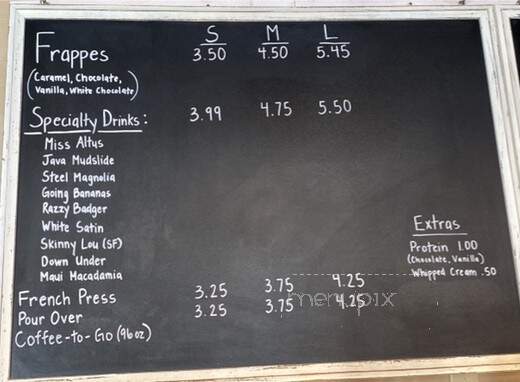 S M L
Frappes 3.50 4.50 5.45
(Caramel, Chocolate,
Vanilla, White Chocolate)
Specialty Drinks: 3.99 4.75 5.50
Miss Altus
Java Mudslide
Steel Magnolia
Going Bananas
Razzy Badger
White Satin
Skinny Lou (SF)
Down Under
Maui Macadamia
Extras
Protein 1.00
(Chocolate, Vanilla)
Whipped Cream .50
French Press 3.25 3.75 4.25
Pour Over 3.25 3.75 4.25
Coffee-to-Go (96oz)
menupix